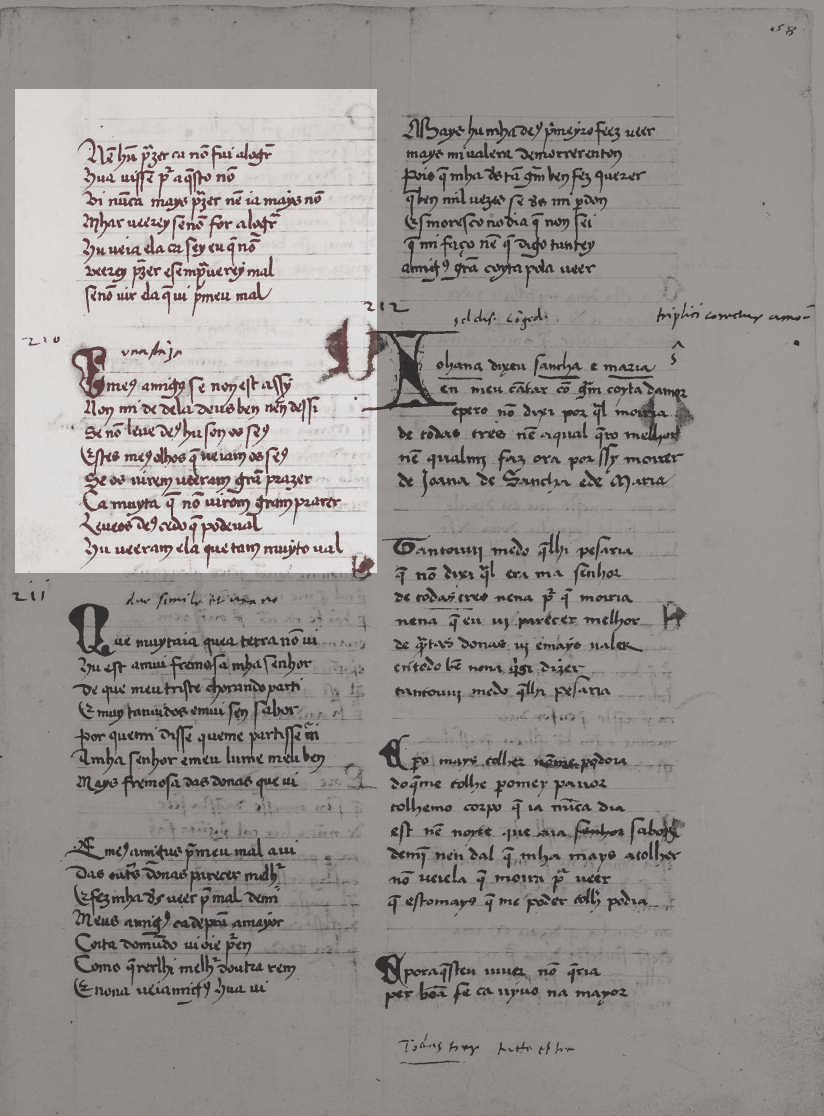 58
Nẽ hũ p̃zer ca nõ fui alogr̃
Hua uisse p̃ aq̃sto nõ
Vi nũca mays p̃zer nẽ ia mays nõ
Mhar ueerey senõ for alogr̃
Hu ueia ela ca sey eu q̃ nõ
Veerey p̃zer e semp̃ uerey mal
senõ uir ela q̃ ui p̃meu mal
210
una st̃ia
E meꝰ amigꝰ se non est assy
Non mi de dela deus ben nẽ dessi
Se nõ leue deꝰ hu son os seꝰ
Estes meꝰ olhos q̃ ueiam os seꝰ
Se os uirem ueeram grã prazer
Ca muyta q̃ nõ uirom gram prazer
Leueos deꝰ cedo q̃ pode ual
Hu ueeram ela que tam muyto ual
211
Que muyta ia que a terra nõ ui
Hu est amui fremosa mha senhor
De que meu triste chorando parti
E muy tanuidos e mui sen sabor
Por quem di disse queme partisse m̃
Amha senhor e meu lume meu ben
Mays fremosa das donas que ui
E meꝰ amigus p̃meu mal a ui
Das outr̃s donas parecer melhʳ
E fez mha ds ueer p̃ mal demĩ
Meus amigꝰ ca de prã amayor
Coita do mũdo ui oie p̃ en
Como q̃rerlhi melhʳ doutra rem
E non a ueia amigꝰ hua ui
Mays hu mha deꝰ p̃meyro fez ueer
mays mi ualera de morrer enton
Pois q̃ mha ds tã grm ben fez querer
q̃ ben mil uezes se ds mi p̃don
Esmoresco no dia q̃ non sei
q̃ mi faço nẽ q̃ digo tantey
amigꝰ grã coyta pola ueer
212
Nohana dixeu sancha e maria
en meu cãtar cõ grm coyta damor
e pero nõ dixi por q̃l moiria
de todas tres nẽ a qual q̃ro melhor
nẽ qualmi faz ora por ssy morrer
de Joana de Sancha e de Maria
Tantouuj medo q̃lhi pesaria
q̃ nõ dixi q̃l era ma senhor
de todas tres nen a p̃ q̃ moiria
nen a q̃ eu ui parecer melhor
de q̃tas donas ui e mays ualer
en todo bẽ non a q̃gi dizer
tantouuj medo q̃lhi pesaria
E po mays colher nõme podoia
do q̃me tolhe pomey pauor
tolhemo corpo q̃ ia nũca dia
est nẽ noyte que aia senhor sabor
demĩ nen dal q̃ mha mays a tolher
nõ ueiela q̃ moira p̃ ueer
q̃ estomays q̃ me poder tolhʳ podia
E por aq̃sten uiuer nõ q̃ria
per boã fe ca uyuo na mayor